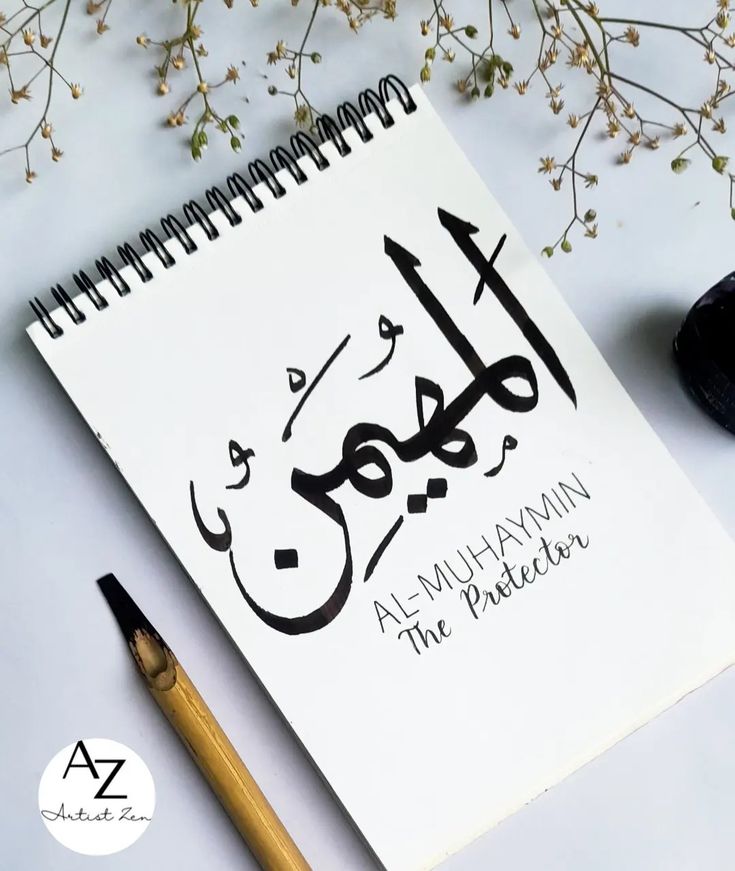 المُهَيْمِنُ
AL-MUHAYMIN
The Protector
AZ
Artist Zen